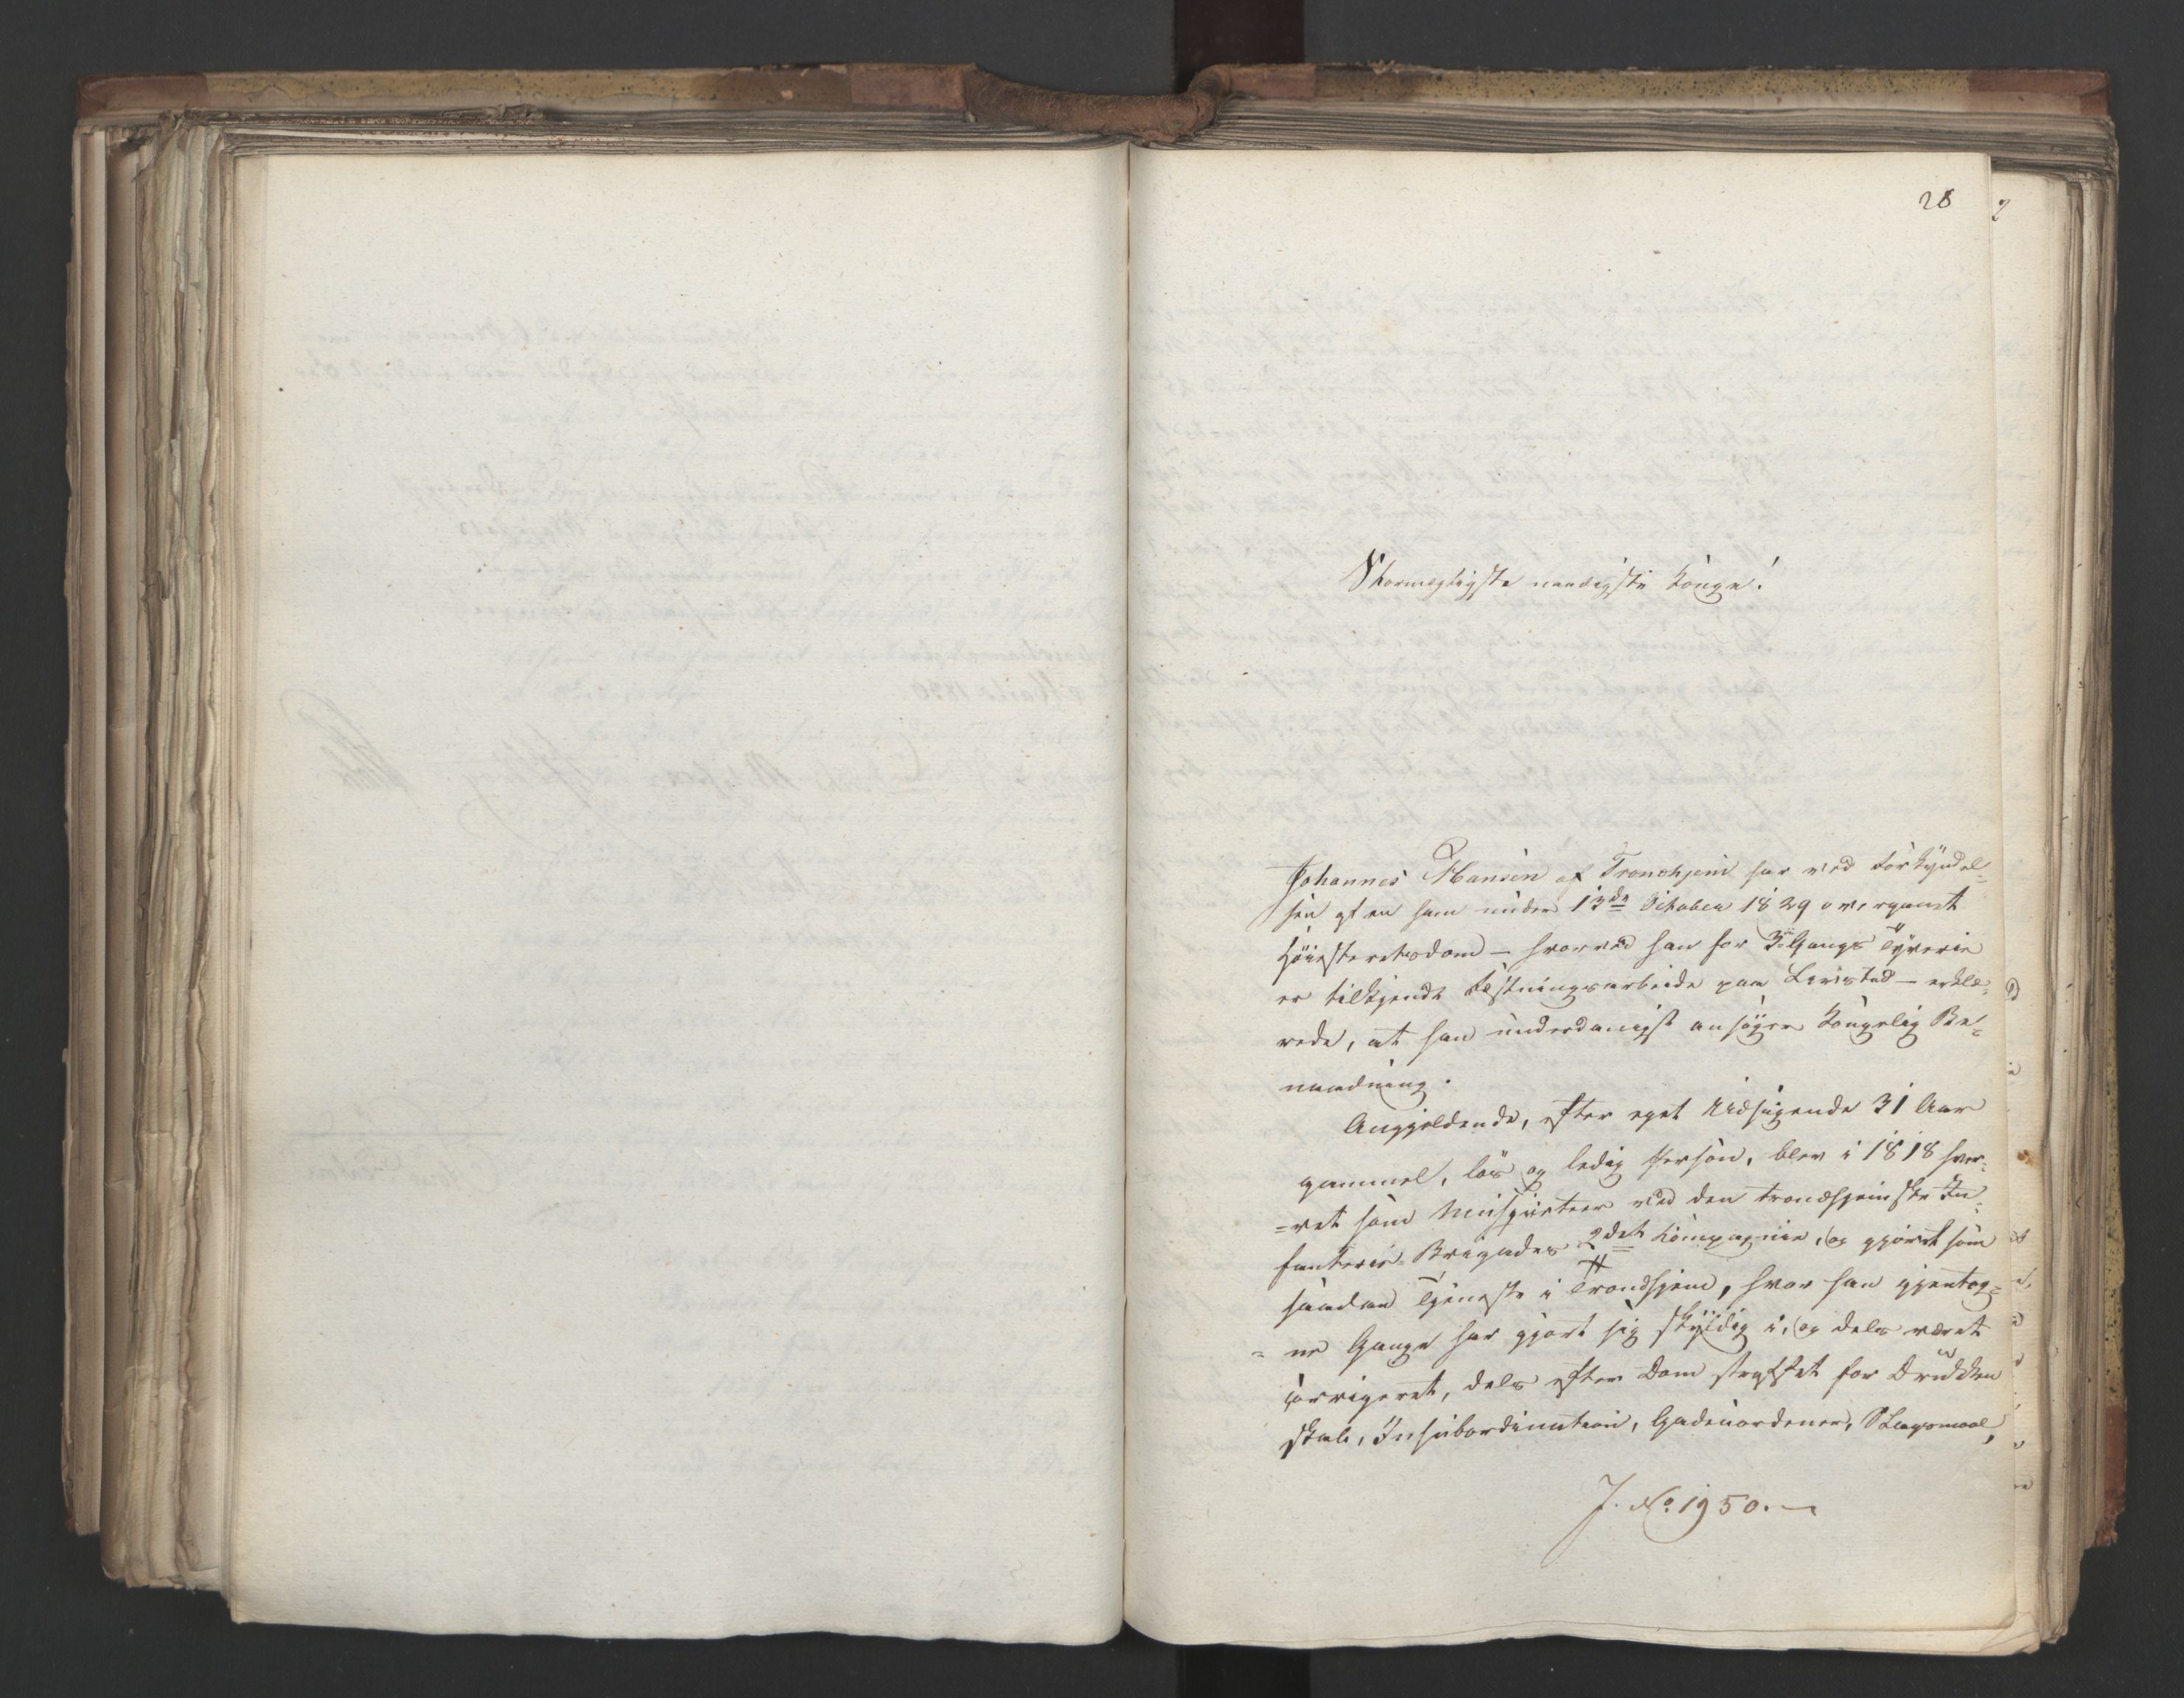 28
Stormægtigste naadigste Konge!
Johannes Hansen af Trondhjem har ved Forkyndel-
sen af en ham under 13de October 1829 overgaaet
Høiesteretsdom – hvorved han for 3die Gangs Tyverie
er tilkjendt Fæstningsarbeide paa Livstid – erklæ-
rede, at han underdanigst ansøger Kongelig Be-
naadning.
Angjeldende, efter eget Udsigende 31 Aar
gammel, løs og ledig Person, blev i 1818 hver-
=vet som Musqueteer ved den trondhjemske In-
fanterie-Brigades 2det Kompagnie, og gjorde som
saadan Tjeneste i Trondhjem, hvor han gjentag-
=ne Gange har gjort sig skyldig i, og dels været
corrigeret, dels efter Dom straffet for Drukken
skab, Insubordination, Gadeuordener, Slagsmaal,
J. No. 1950.